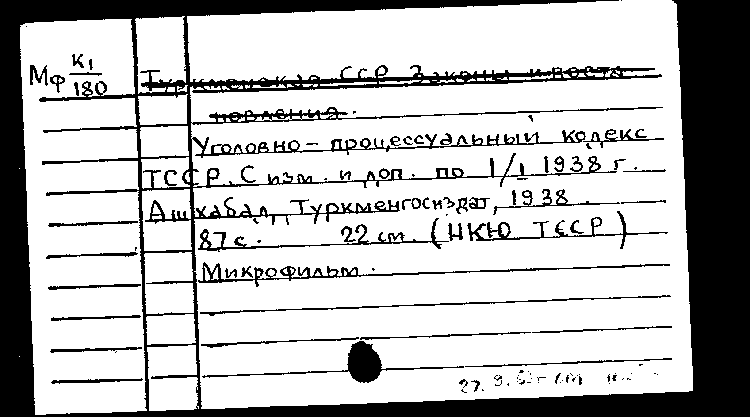 Мф К1/180
Туркменская ССР. Законы и поста-
новления.
Уголовно-процессуальный кодекс
ТССР. С изм. и доп. по 1/I 1938 г.
Ашхабад, Туркменгосиздат, 1938.
87 с. 22 см. (НКЮ ТССР)
Микрофильм.
27. 9.